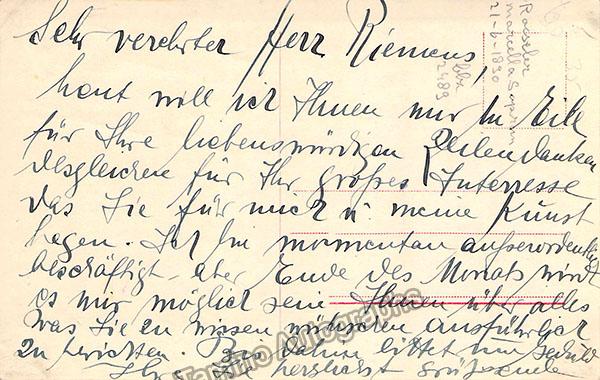 Sehr verehrter Herr Riemens,
heut will ich Ihnen nur in Eile
für Ihre liebenswürdigen Zeilen danken
desgleichen für Ihr großes Interresse
das Sie für mich u. meine Kunst
hegen. Ich bin momentan außerordentlich
beschäftigt aber Ende des Monats wird
es mir möglich sein Ihnen über alles
was Sie zu wissen wünschen ausführlich
zu berichten. Bis dahin bittet um Geduld
Ihr herzlichst grüssende
Roeseler
Marcella
21-6-1890
2489
Tamino Autographs